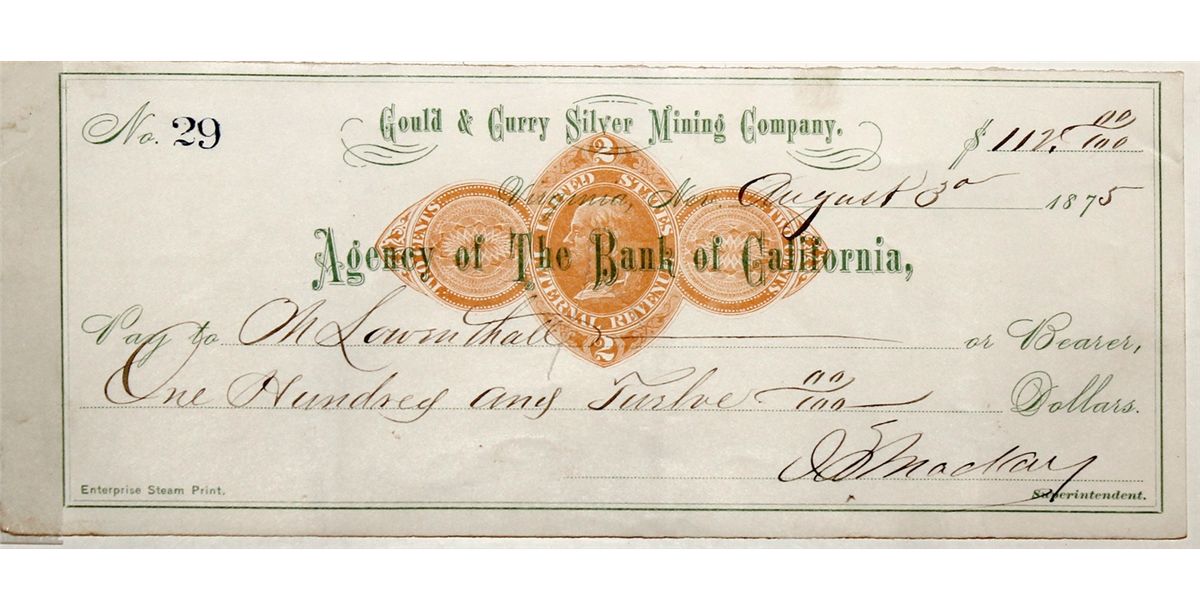 Gould & Curry Silver Mining Company.
No. 29
$ 112. 00/100
Virginia, Nev. August 3d 1875
2
UNITED STATES
TWO CENTS
Agency of The Bank of California,
INTERNAL REVENUE
2
Pay to M Lowenthall or Bearer,
One Hundred and Twelve 00/100 Dollars.
J W Mackay
Enterprise Steam Print.
Superintendent.